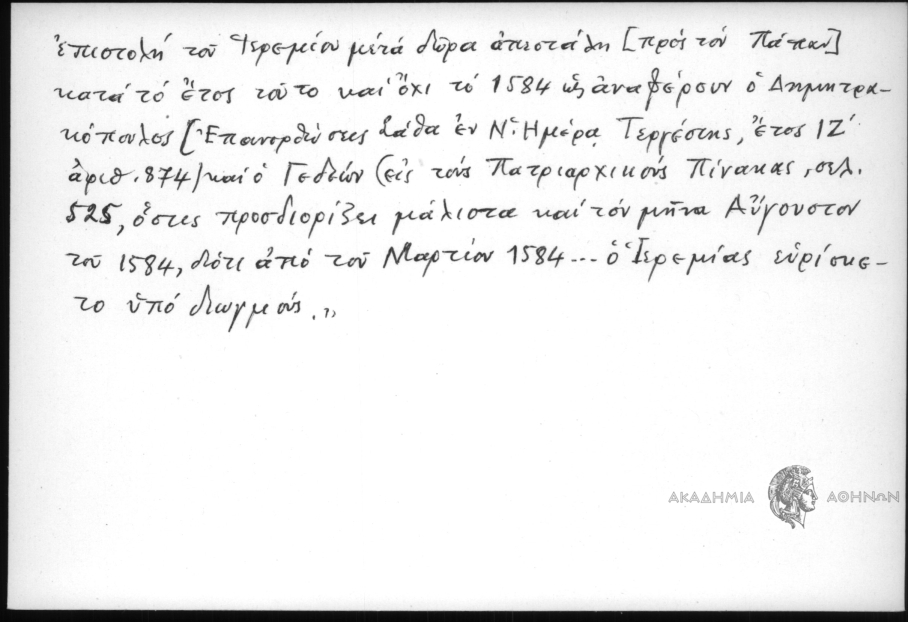 ἐπιστολή τοῦ Ἱερεμίου μετά δῶρα ἀπεστάλη [πρός τόν Πάπαν]
κατά τό ἔτος τοῦτο καί ὄχι τό 1584 ὡς ἀναφέρουν ὁ Δημητρα-
κόπουλος [Ἐπανορθώσεις Σάθα ἐν Ν. Ἡμέρᾳ Τεργέστης, ἔτος ΙΖ΄
ἀριθ. 874) καί ὁ Γεδεών (εἰς τούς Πατριαρχικούς Πίνακας, σελ.
525, ὅστις προσδιορίζει μάλιστα καί τόν μῆνα Αὔγουστον
τοῦ 1584, διότι ἀπό τοῦ Μαρτίου 1584... ὁ Ἱερεμίας εὑρίσκε-
το ὑπό διωγμούς.»
ΑΚΑΔΗΜΙΑ ΑΘΗΝΩΝ